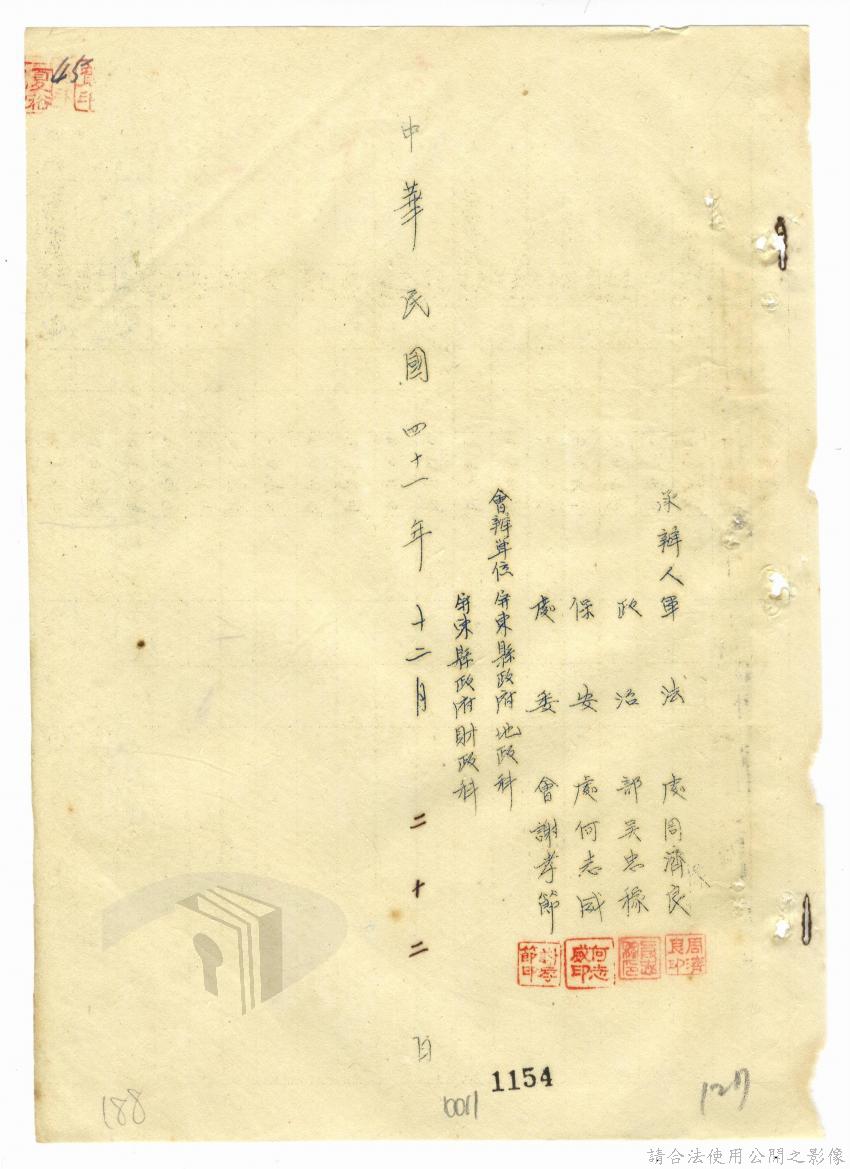 承辦人軍法處周濟良
政治部吳忠穄
保安處何志咸
處委會謝孝節
周濟良印
何志咸印
謝孝節印
會辦單位屏東縣政府地政科
屏東縣政府財政科
中華民國四十一年十二月二十二日
45
夏裕
1154
188
1001
127
請合法使用公開之影像